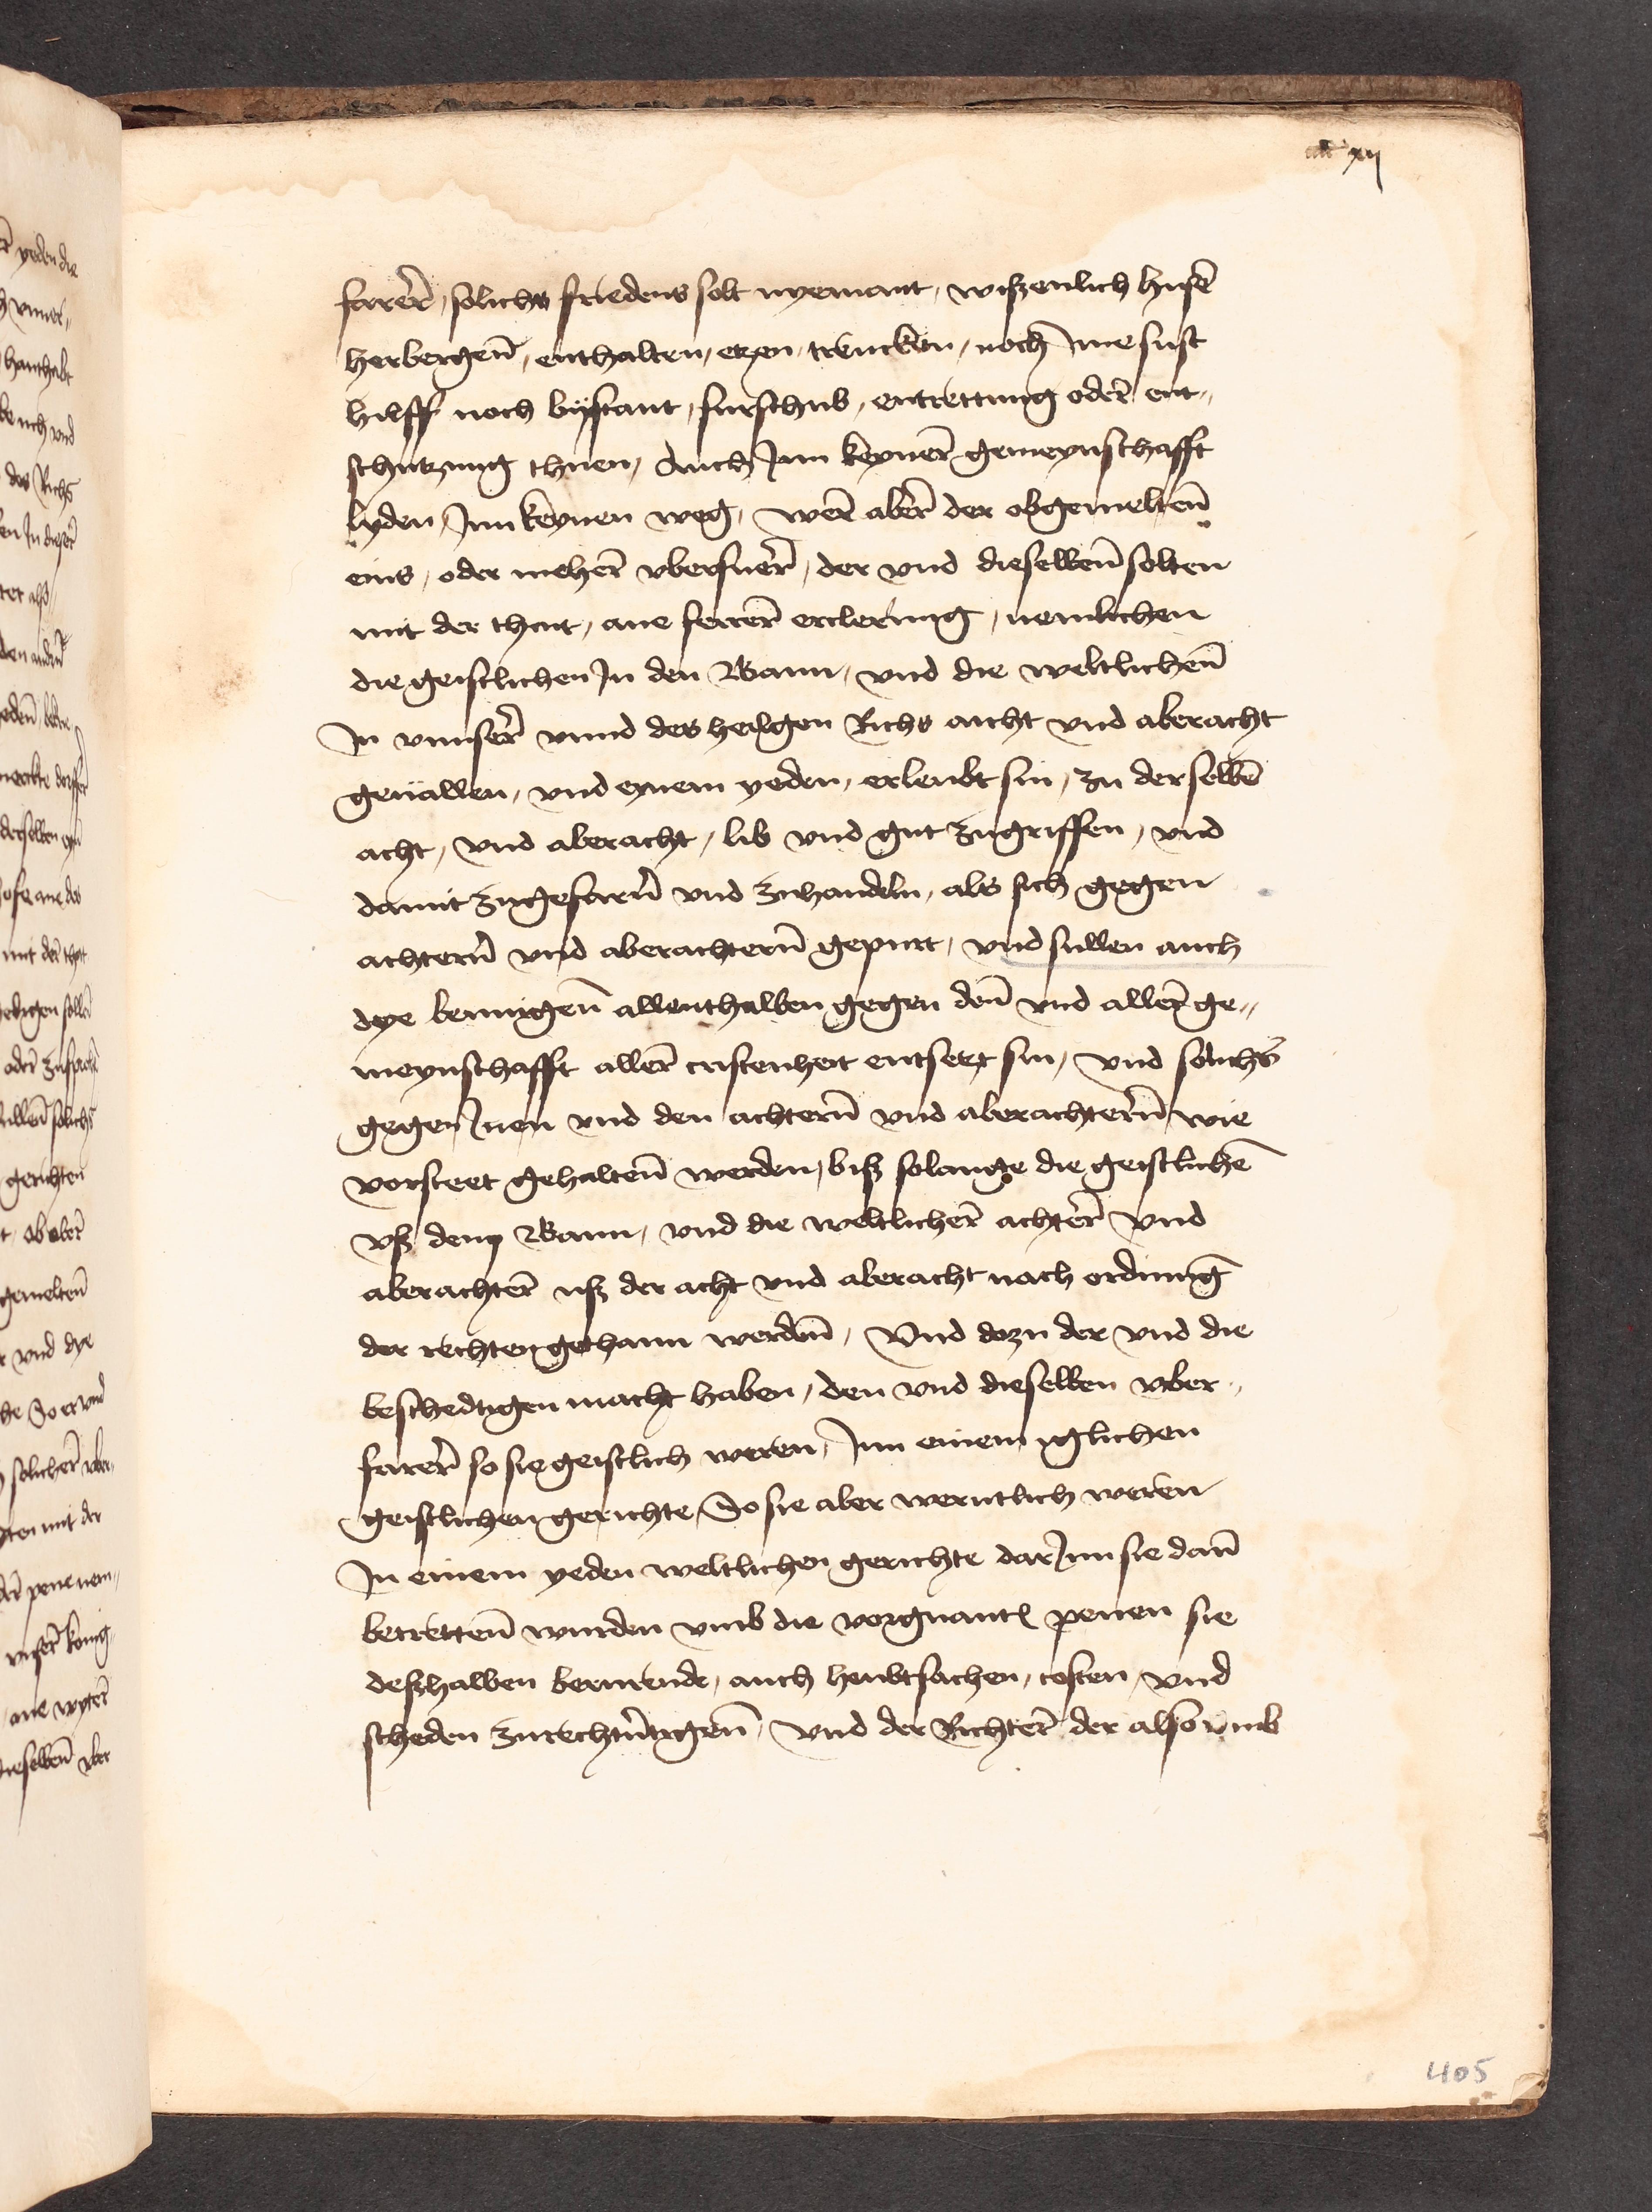 xij
farer̄, solichs friedens solt nyemant, wißenlich husē
herbergen̄, enthalten, etzen, trencken, noch Ime sust
hilff noch bÿstant, furschub, entrettung oder̄ ent„
schutzung thuen, auch Inn keyner̄ gemeynschafft
lyden, Inn keynen weg, wer̄ aber̄ der obgemelten̄
eins, oder meher̄ vberfuer̄, der vnd dieselben̄ solten
mit der that, ane ferrer̄ erclerung, nemlichen
die geistlichen In den Bann, vnd die weltlichen̄
In vnnser̄ vnnd des heilgen Richs aicht vnd aberacht
geuallen, vnd eynem yeden, erleubt sin, zu derselbē
acht, vnd aberacht, lib vnd gut zugriffen, vnd
damit zugefarn̄ vnd zuhandeln, als sich gegen
achtern̄ vnd aberachtern̄ gepurt, vnd sullen auch
dye bennigen̄ allenthalben gegen den̄ vnd aller̄ ge„
meynschafft aller̄ cristenheit entsetzt sin, vnd solichs
gegen Inen vnd den achtern̄ vnd aberachtern̄ wie
vorsteet gehalten̄ werden, biß solange die geistlichē
vß dem Bann, vnd die weltlicher̄ achter̄ vnd
aberachter̄ uß der acht vnd aberacht nach ordnung
der rechten gethann werden̄, Vnd dozu der vnd die
beschedigen macht haben, den vnd dieselben vber„
farer̄ so sie geistlich weren, Inn einem yglichen
geistlichen gerichte, So sie aber werntlich weren
In einem yeden weltlichen gerichte dar Inn sie dan̄
betretten̄ wurden vmb die vorgnanten penen sie
deßhalben berurende, auch heubtsachen, costen, vnd
scheden zurechtuertigen̄, vnd der Richter̄ der also vmb
405